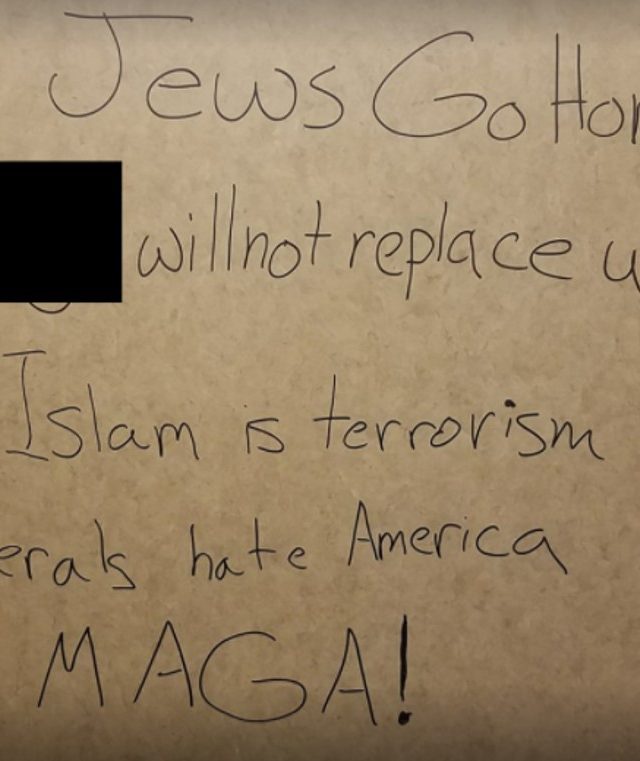 Jews Go Hom
will not replace u
Islam is terrorism
erals hate America
MAGA!